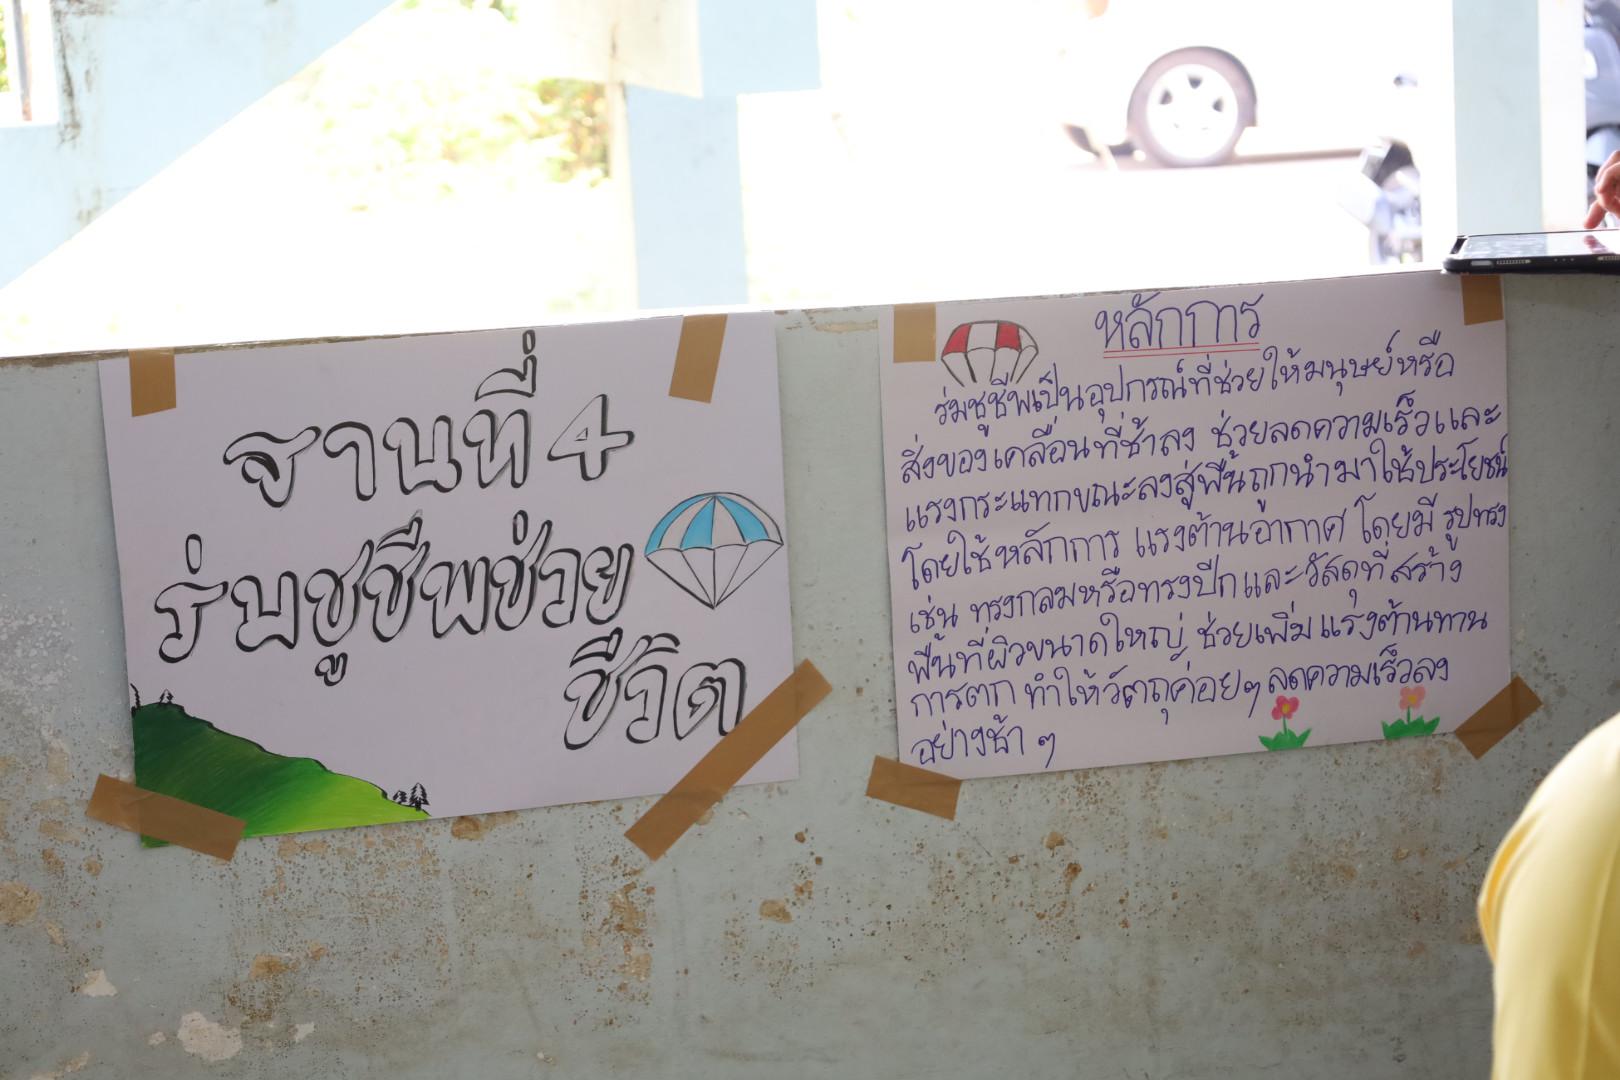 ฐานที่ 4
ร่มชูชีพช่วย
ชีวิต
หลักการ
ร่มชูชีพเป็นอุปกรณ์ที่ช่วยให้มนุษย์หรือ
สิ่งของเคลื่อนที่ช้าลง ช่วยลดความเร็วและ
แรงกระแทกขณะลงสู่พื้นถูกนำมาใช้ประโยชน์
โดยใช้หลักการ แรงต้านอากาศ โดยมี รูปทรง
เช่น ทรงกลมหรือทรงปีก และวัสดุที่สร้าง
พื้นที่ผิวขนาดใหญ่ ช่วยเพิ่มแรงต้านทาน
การตก ทำให้วัตถุค่อยๆ ลดความเร็วลง
อย่างช้า ๆ